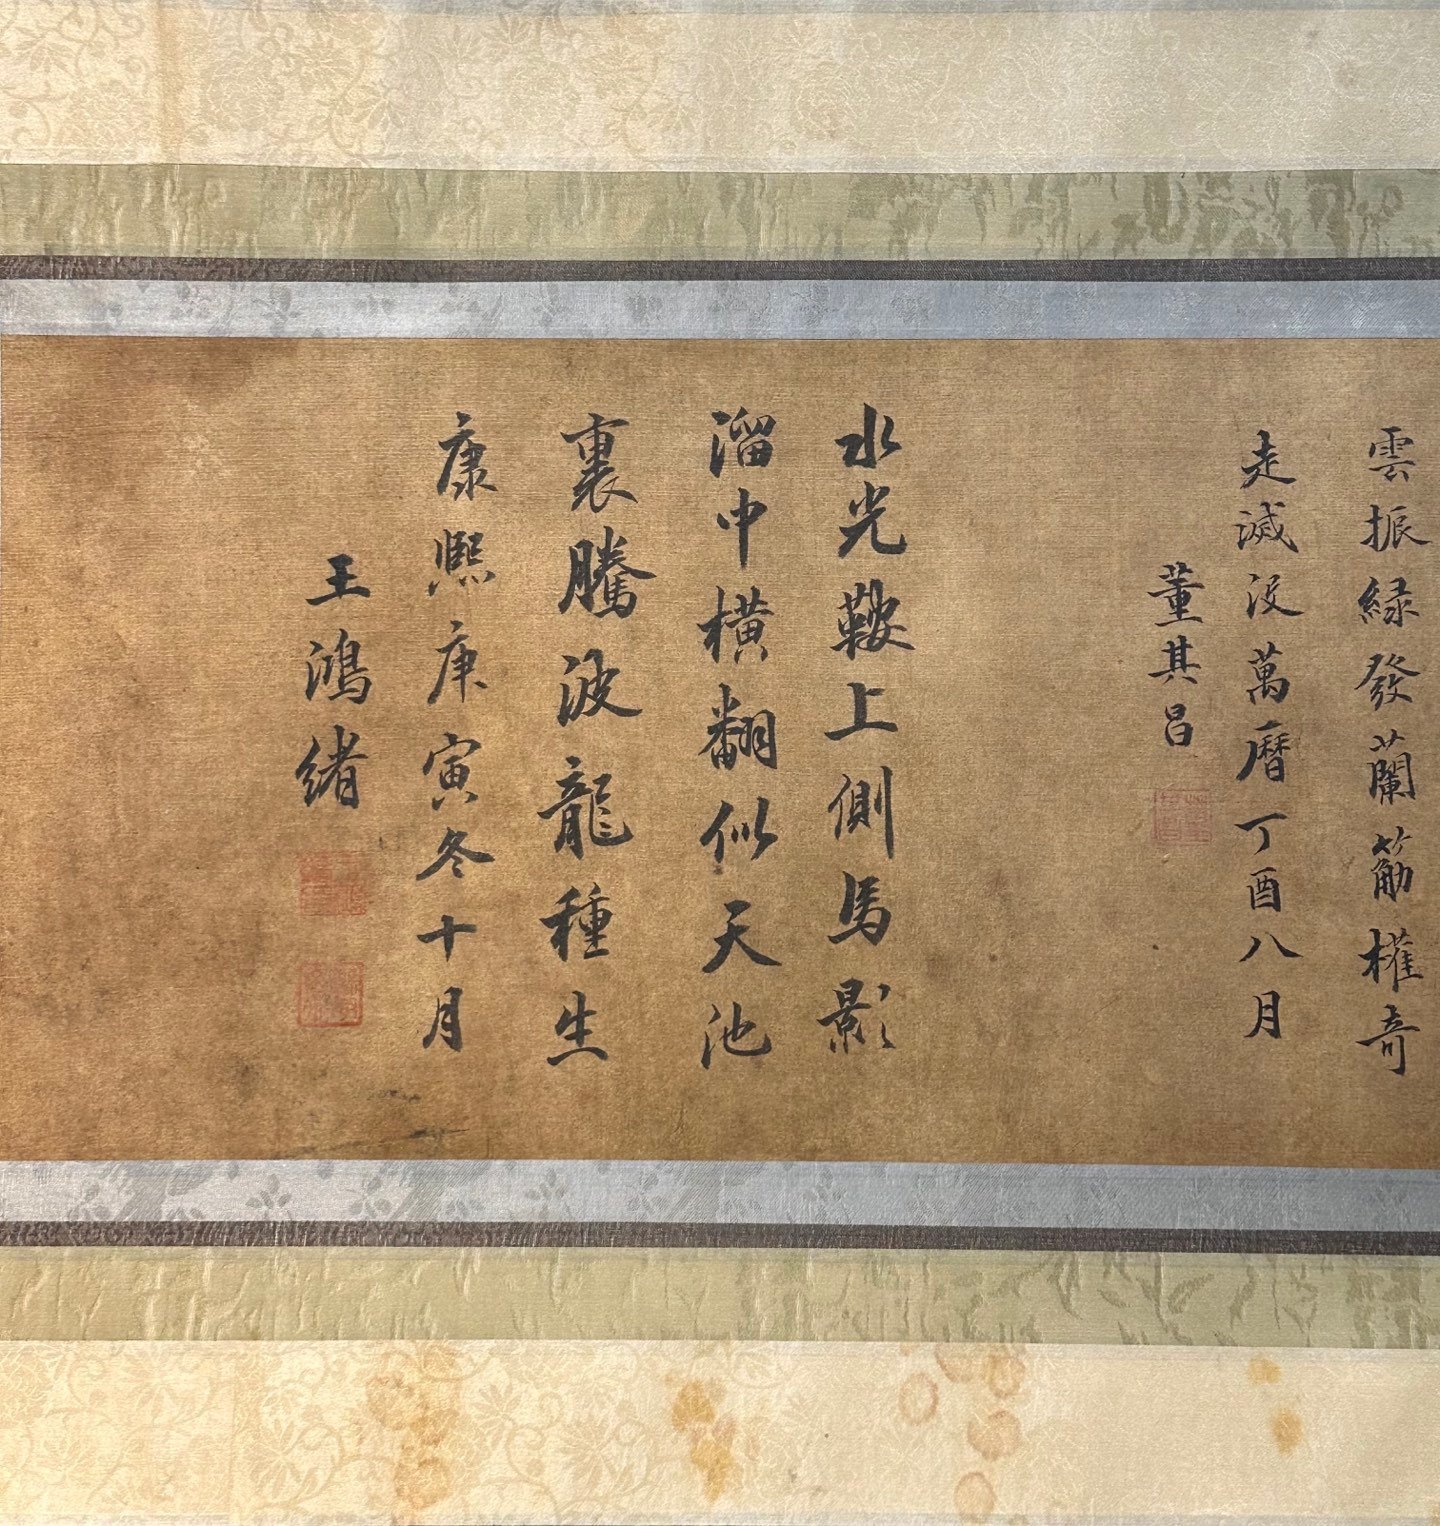 雲振緑發蘭筋權奇
走滅没萬曆丁酉八月
董其昌
水光鞍上側馬影
溜中横翻似天池
裏騰波龍種生
康熙庚寅冬十月
王鴻緒